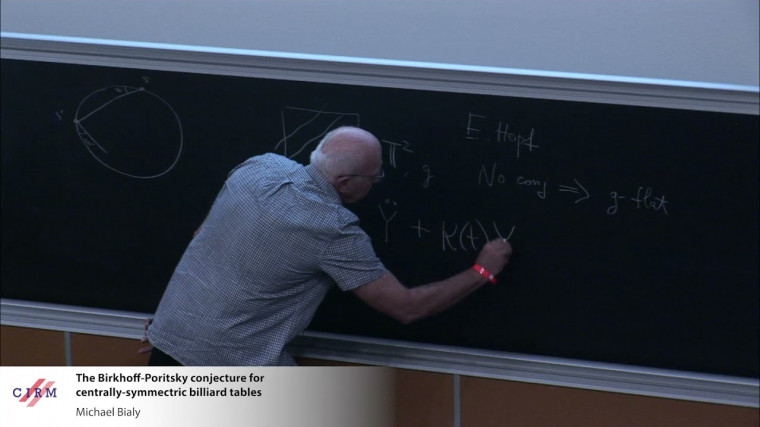 E. Hopf
𝕋², g
No conj ⟹ g-flat
Ÿ + K(t) Y
CIRM
The Birkhoff-Poritsky conjecture for
centrally-symmectric billiard tables
Michael Bialy